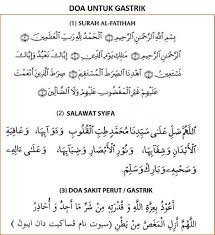 DOA UNTUK GASTRIK
(1) SURAH AL-FATIHAH
بِسْمِ اللَّهِ الرَّحْمَنِ الرَّحِيمِ ۝ الْحَمْدُ لِلَّهِ رَبِّ الْعَالَمِينَ ۝
الرَّحْمَنِ الرَّحِيمِ ۝ مَالِكِ يَوْمِ الدِّينِ ۝ إِيَّاكَ نَعْبُدُ وَإِيَّاكَ
نَسْتَعِينُ ۝ اهْدِنَا الصِّرَاطَ الْمُسْتَقِيمَ ۝ صِرَاطَ الَّذِينَ أَنْعَمْتَ
عَلَيْهِمْ غَيْرِ الْمَغْضُوبِ عَلَيْهِمْ وَلَا الضَّالِّينَ ۝
(2) SALAWAT SYIFA
اَللَّهُمَّ صَلِّ عَلَى سَيِّدِنَا مُحَمَّدٍ طِبِّ الْقُلُوْبِ وَدَوَآئِهَا، وَعَافِيَةِ
الْأَبْدَانِ وَشِفَآئِهَا، وَنُوْرِ الْأَبْصَارِ وَضِيَآئِهَا، وَعَلَى آلِهِ
وَصَحْبِهِ وَبَارِكْ وَسَلِّمْ.
(3) DOA SAKIT PERUT / GASTRIK
أَعُوْذُ بِعِزَّةِ اللَّهِ وَقُدْرَتِهِ مِنْ شَرِّ مَا أَجِدُ وَأُحَاذِرُ
اَللَّهُمَّ أَزِلِ الْمَغَصَ مِنْ بَطْنِ (سبوت نام ڤساكيت دان ايبوڽ)